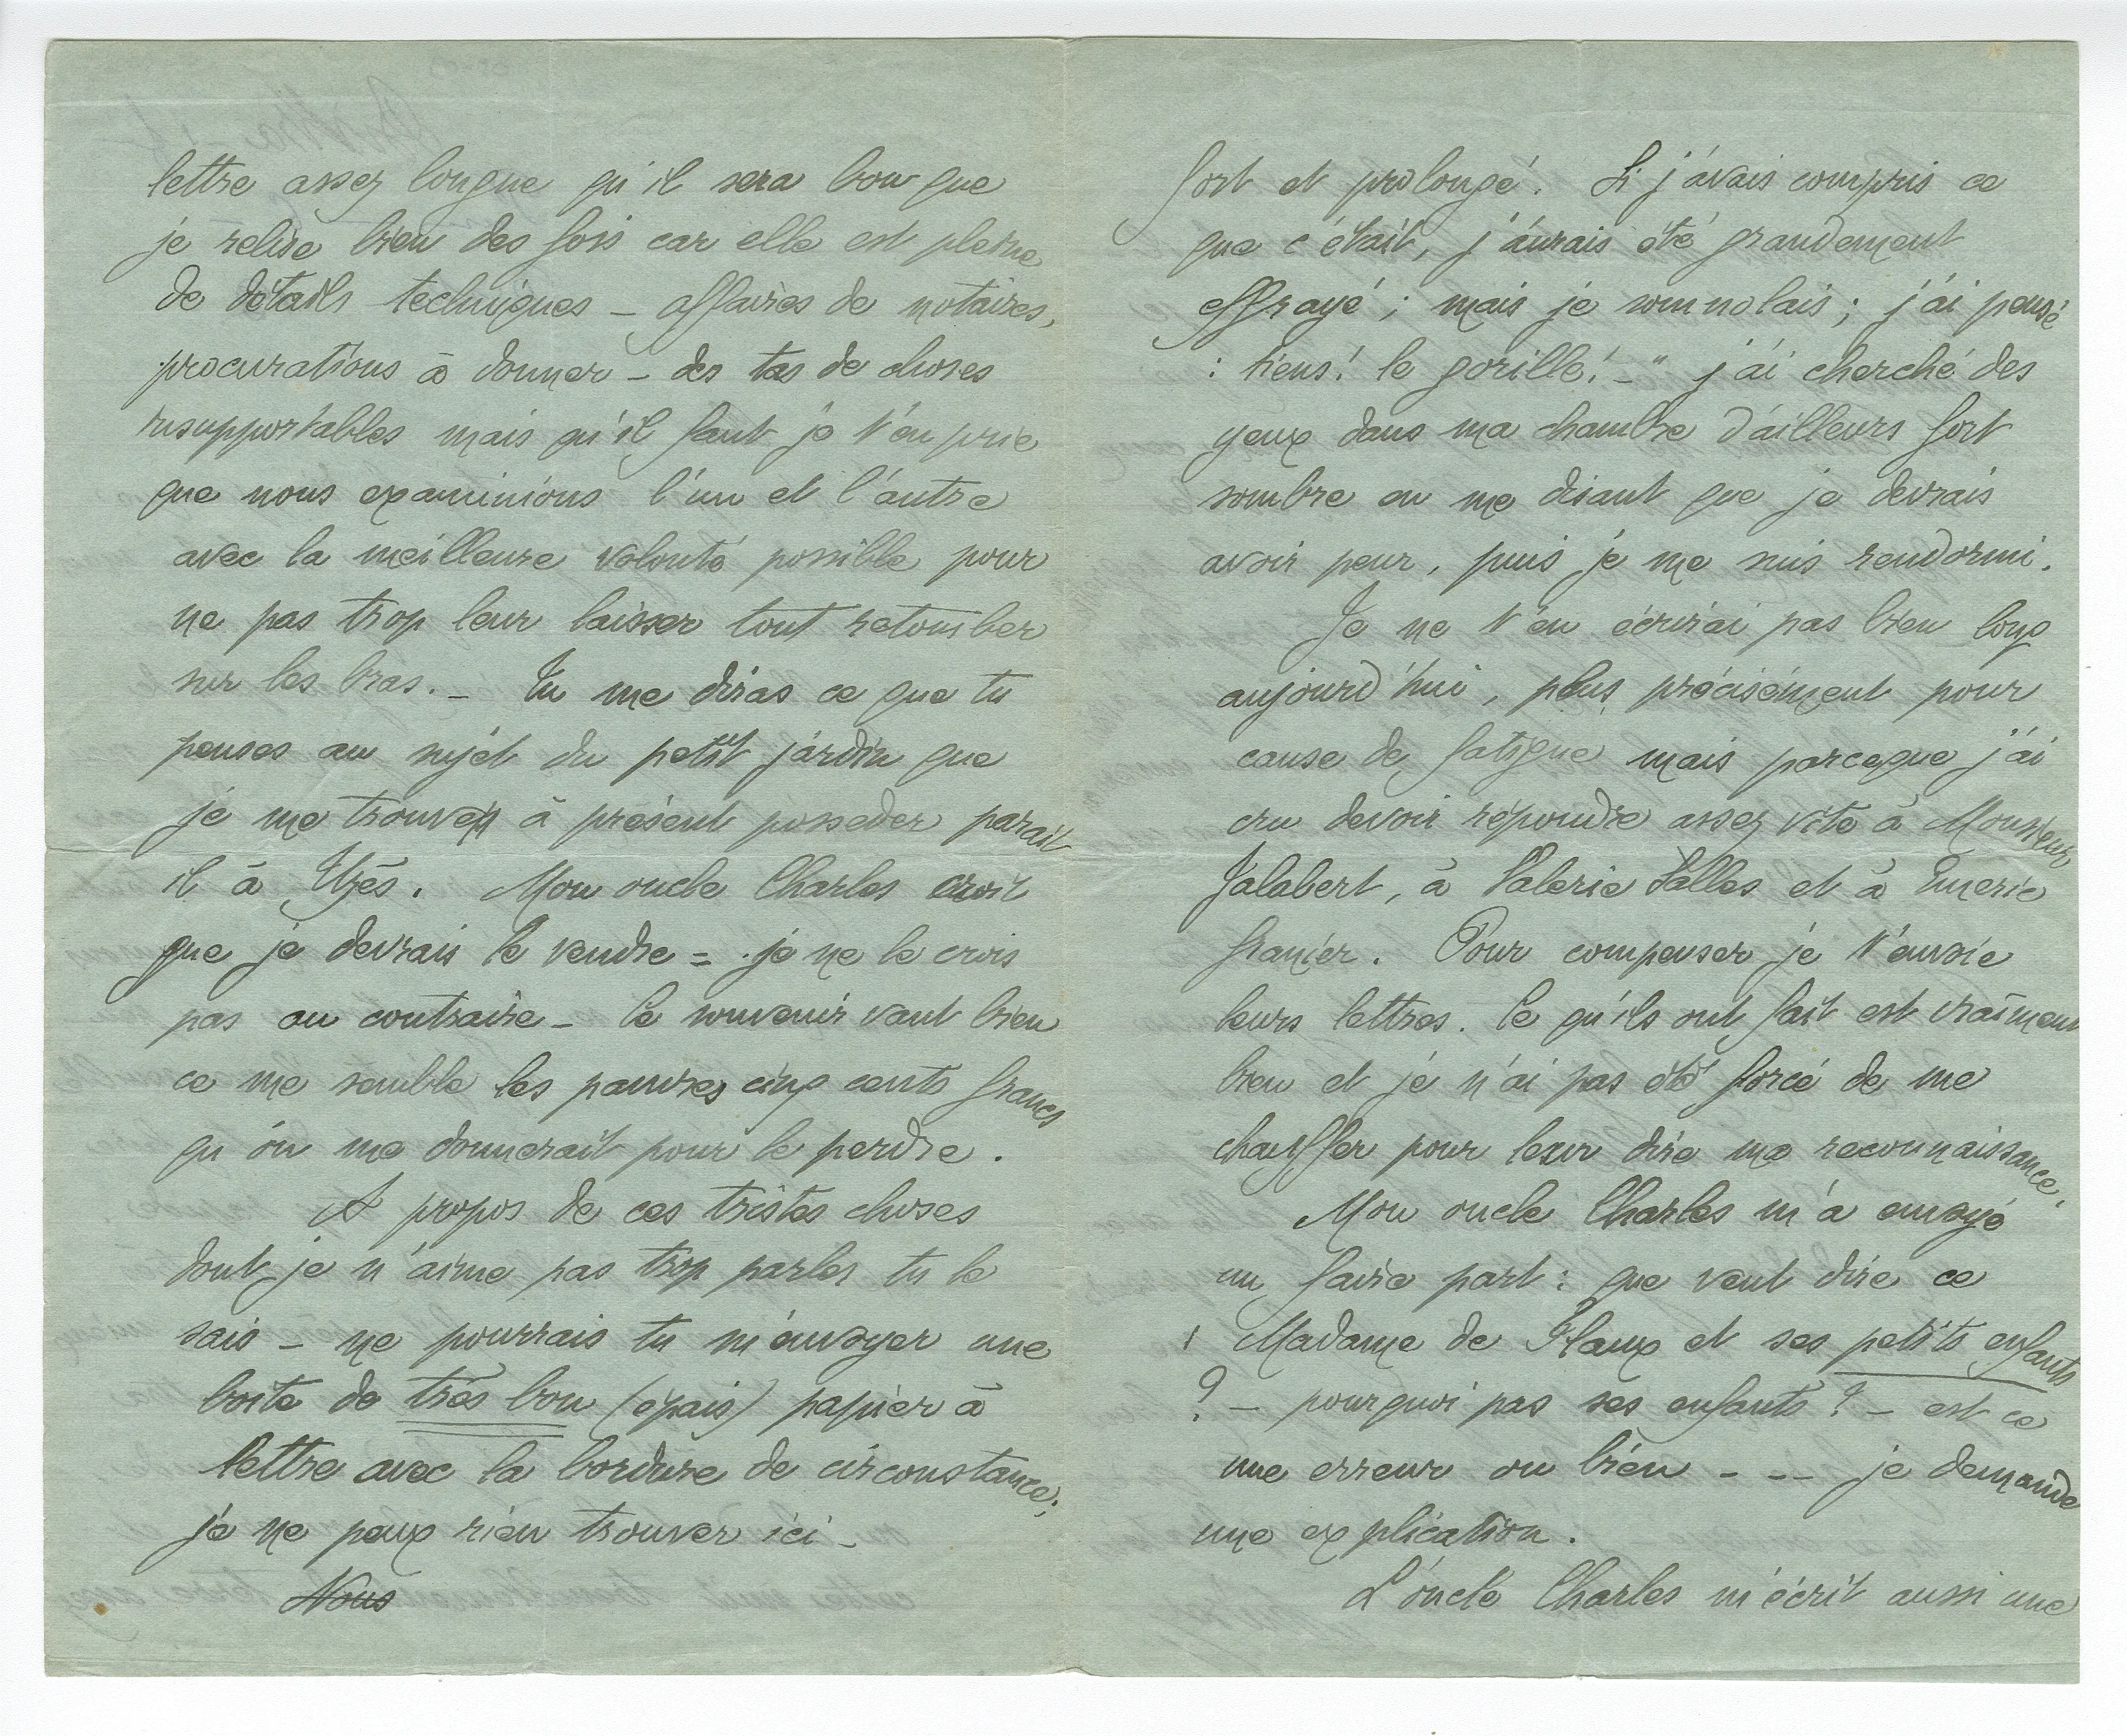 lettre assez longue qu'il sera bon que
je relise bien des fois car elle est pleine
de détails techniques – affaires de notaires,
procurations à donner – des tas de choses
insupportables mais qu'il faut je t'en prie
que nous examinions l'un et l'autre
avec la meilleure volonté possible pour
ne pas trop leur laisser tout retomber
sur les bras. – Tu me diras ce que tu
penses au sujet du petit jardin que
je me trouve à présent posseder parait
il à Uzès. Mon oncle Charles croit
que je devrais le vendre = je ne le crois
pas au contraire – le souvenir vaut bien
ce me semble les pauvres cinq cents francs
qu'on me donnerait pour le perdre.
A propos de ces tristes choses
dont je n'aime pas trop parler tu le
sais – ne pourrais tu m'envoyer une
boite de très bon (épais) papier à
lettre avec la bordure de circonstance;
je ne peux rien trouver ici –
Nous
fort et prolongé. Si j'avais compris ce
que c'était, j'aurais été grandement
effrayé; mais je somnolais; j'ai pensé
: tiens! le gorille! –" j'ai cherché des
yeux dans ma chambre d'ailleurs fort
sombre en me disant que je devrais
avoir peur, puis je me suis rendormi.
Je ne t'en écrirai pas bien long
aujourd'hui, plus précisément pour
cause de fatigue mais parceque j'ai
cru devoir répondre assez vite à Monsieur
Jalabert, à Valerie Salles et à Emerie
Granier. Pour compenser je t'envoie
leurs lettres. Ce qu'ils ont fait est vraiment
bien et je n'ai pas été forcé de me
chauffer pour leur dire ma reconnaissance.
Mon oncle Charles m'a envoyé
un faire part: que veut dire ce
Madame de Flaux et ses petits enfants
? – pourquoi pas ses enfants? – est ce
une erreur ou bien – – – je demande
une explication.
L'oncle Charles m'écrit aussi une